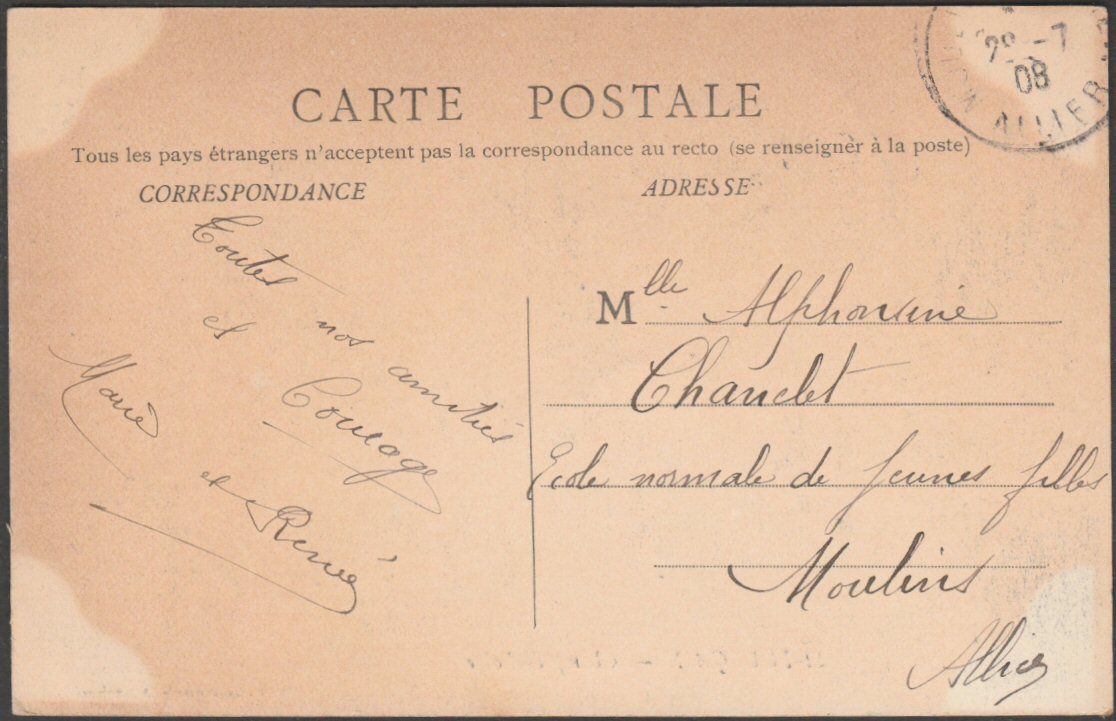 CARTE POSTALE
Tous les pays étrangers n'acceptent pas la correspondance au recto (se renseigner à la poste)
CORRESPONDANCE
Toutes nos amitiés
et Courage
Marie et Renée
ADRESSE
Mlle Alphonsine
Chandet
Ecole normale de jeunes filles
Moulins
Allier
28-7
08
ALLIER